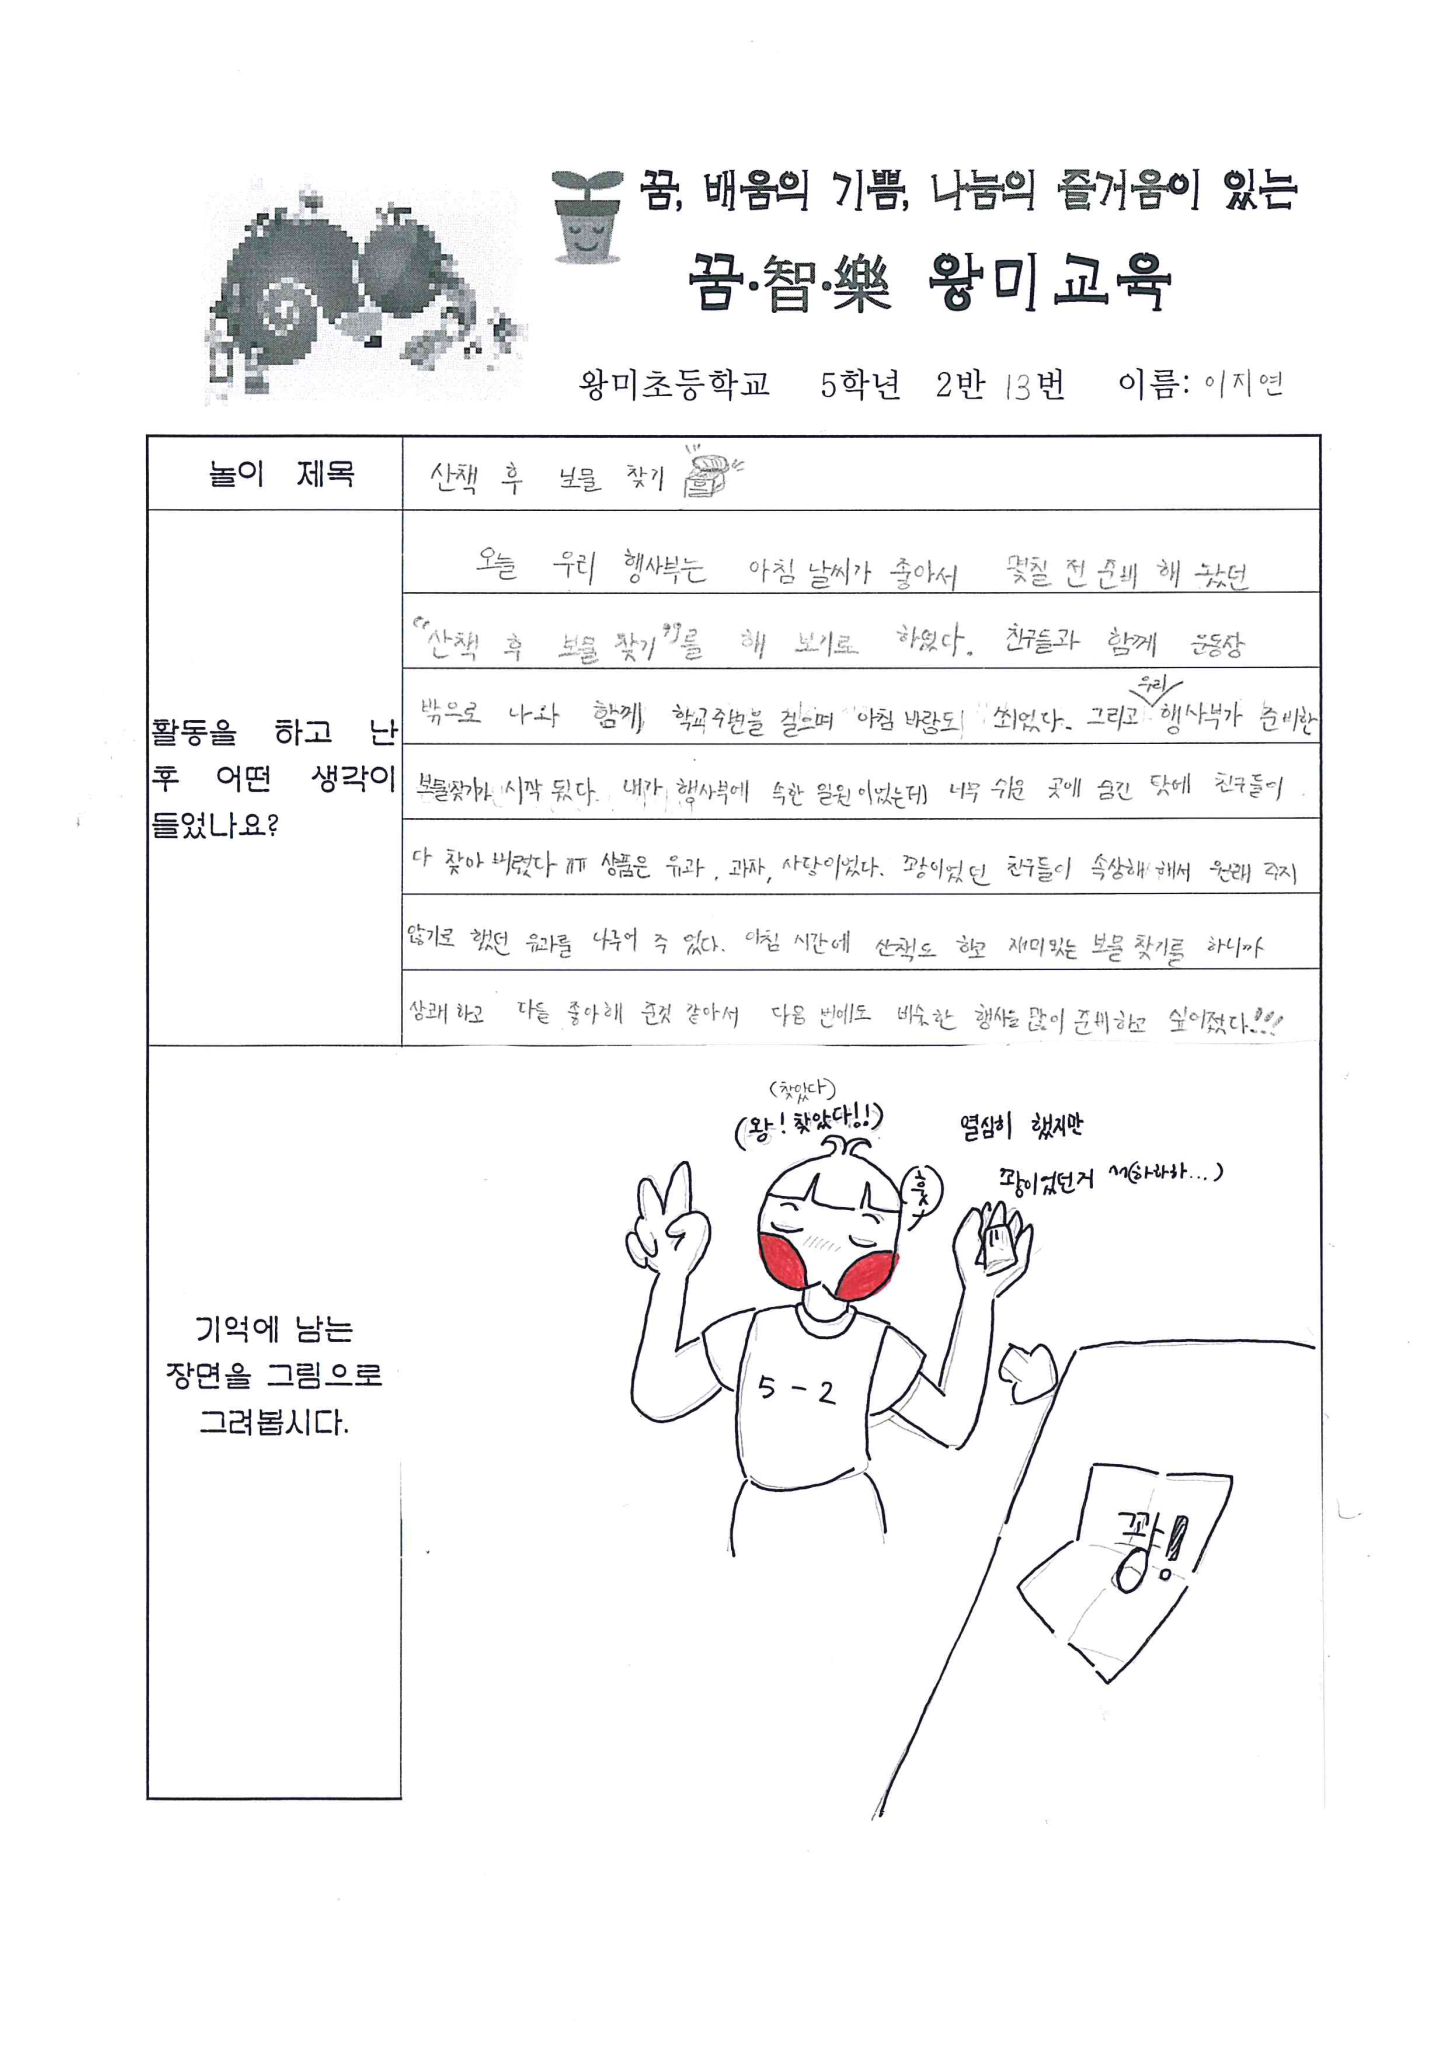 꿈, 배움의 기쁨, 나눔의 즐거움이 있는
꿈·智·樂 왕미교육
왕미초등학교 5학년 2반 13번 이름: 이지연
놀이 제목
산책 후 보물 찾기
활동을 하고 난
후 어떤 생각이
들었나요?
오늘 우리 행사부는 아침 날씨가 좋아서 몇칠 전 준비 해 놨던
“산책 후 보물 찾기”를 해 보기로 하였다. 친구들과 함께 운동장
밖으로 나와 함께 학교주변을 걸으며 아침 바람도 쐬었다. 그리고 우리 행사부가 준비한
보물찾기가 시작 됬다. 내가 행사부에 속한 일원이었는데 너무 쉬운 곳에 숨긴 탓에 친구들이
다 찾아 버렸다 ㅠㅠ 상품은 유과, 과자, 사탕이었다. 꽝이었던 친구들이 속상해 해서 원래 주지
않기로 했던 유과를 나누어 주 었다. 아침 시간에 산책도 하고 재미있는 보물 찾기를 하니까
상쾌 하고 다들 좋아해 준것 같아서 다음 번에도 비슷한 행사를 많이 준비하고 싶어졌다!!!
기억에 남는
장면을 그림으로
그려봅시다.
(찾았다)
(왕! 찾았다!!)
열심히 했지만
꽝이었던거 (하하하...)
훗
5-2
꽝!